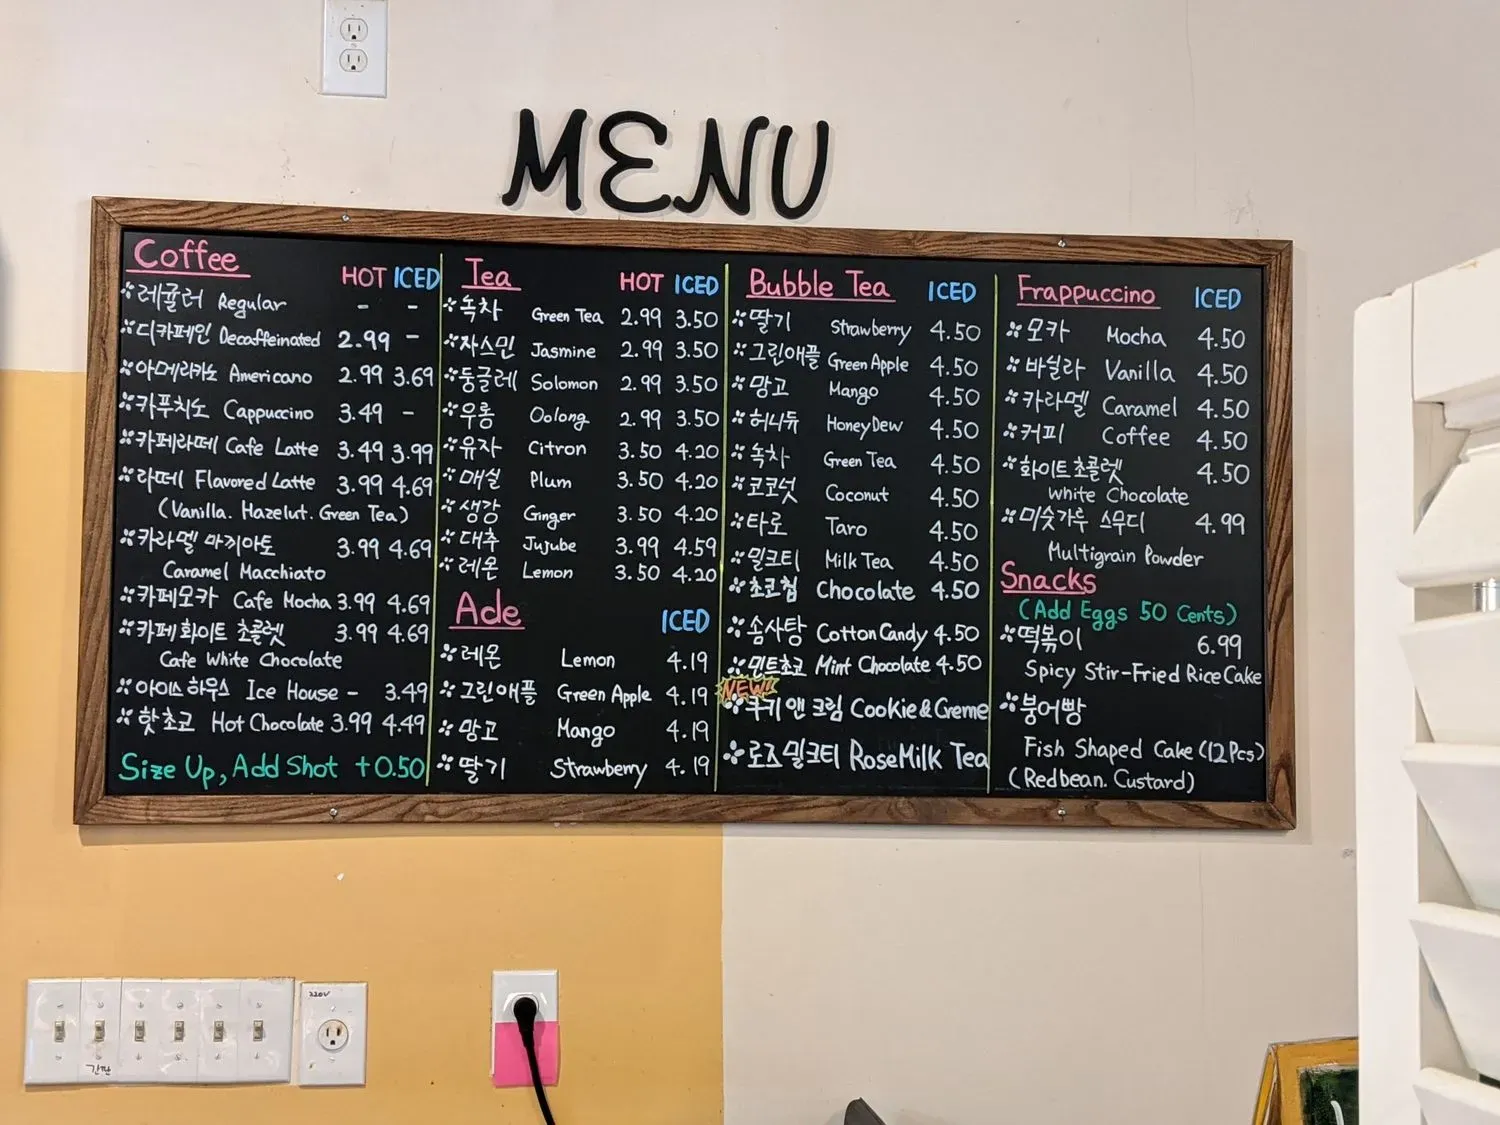 MENU
Coffee HOT ICED
레귤러 Regular - -
디카페인 Decaffeinated 2.99 -
아메리카노 Americano 2.99 3.69
카푸치노 Cappuccino 3.49 -
카페라떼 Cafe Latte 3.49 3.99
라떼 Flavored Latte 3.99 4.69
(Vanilla. Hazelut. Green Tea)
카라멜 마끼아토 3.99 4.69
Caramel Macchiato
카페모카 Cafe Mocha 3.99 4.69
카페 화이트 초콜렛 3.99 4.69
Cafe White Chocolate
아이스 하우스 Ice House - 3.49
핫초코 Hot Chocolate 3.99 4.49
Size Up, Add Shot +0.50
Tea HOT ICED
녹차 Green Tea 2.99 3.50
자스민 Jasmine 2.99 3.50
둥글레 Solomon 2.99 3.50
우롱 Oolong 2.99 3.50
유자 Citron 3.50 4.20
매실 Plum 3.50 4.20
생강 Ginger 3.50 4.20
대추 Jujube 3.99 4.59
레몬 Lemon 3.50 4.20
Ade ICED
레몬 Lemon 4.19
그린애플 Green Apple 4.19
망고 Mango 4.19
딸기 Strawberry 4.19
Bubble Tea ICED
딸기 Strawberry 4.50
그린애플 Green Apple 4.50
망고 Mango 4.50
허니듀 HoneyDew 4.50
녹차 Green Tea 4.50
코코넛 Coconut 4.50
타로 Taro 4.50
밀크티 Milk Tea 4.50
초코칩 Chocolate 4.50
솜사탕 Cotton Candy 4.50
민트초코 Mint Chocolate 4.50
NEW!!
쿠키앤크림 Cookie & Creme
로즈밀크티 RoseMilk Tea
Frappuccino ICED
모카 Mocha 4.50
바닐라 Vanilla 4.50
카라멜 Caramel 4.50
커피 Coffee 4.50
화이트초콜렛 4.50
White Chocolate
미숫가루 스무디 4.99
Multigrain Powder
Snacks
(Add Eggs 50 Cents)
떡볶이 6.99
Spicy Stir-Fried Rice Cake
붕어빵
Fish Shaped Cake (12Pcs)
(Redbean. Custard)
220V
간판